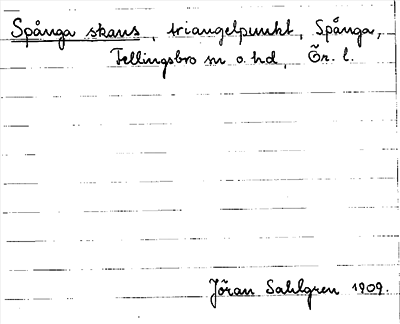 Spånga skans, triangelpunkt, Spånga,
Fellingsbro sn o. hd, Ör. l.
Jöran Sahlgren 1909.